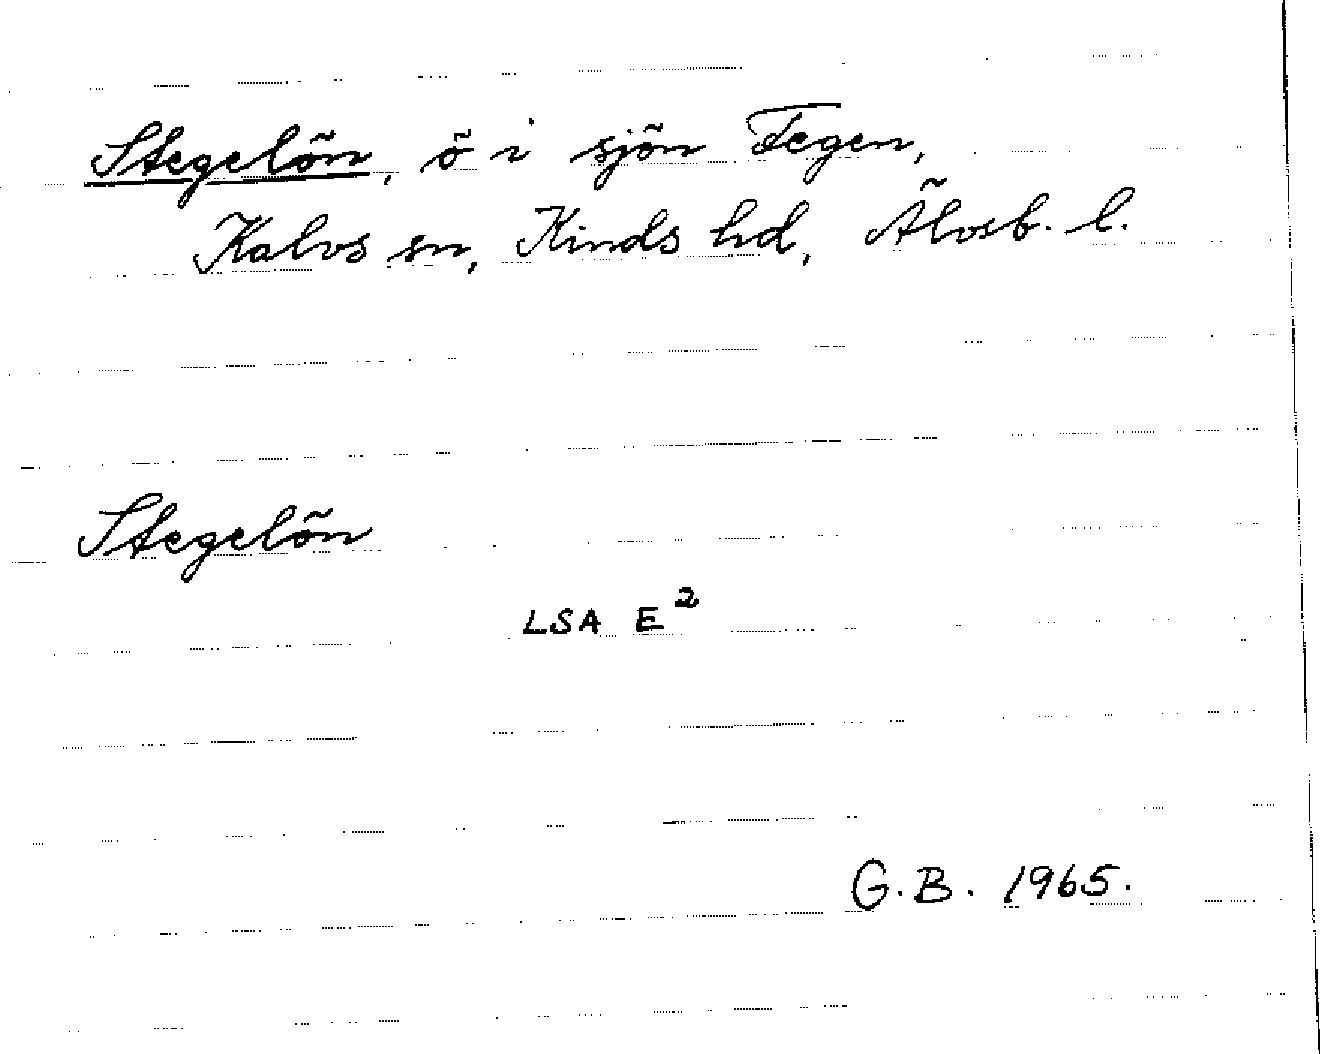 Stegelön, ö i sjön Fegen,
Kalvs sn, Kinds hd, Älvsb. l.
Stegelön
LSA E²
G.B. 1965.